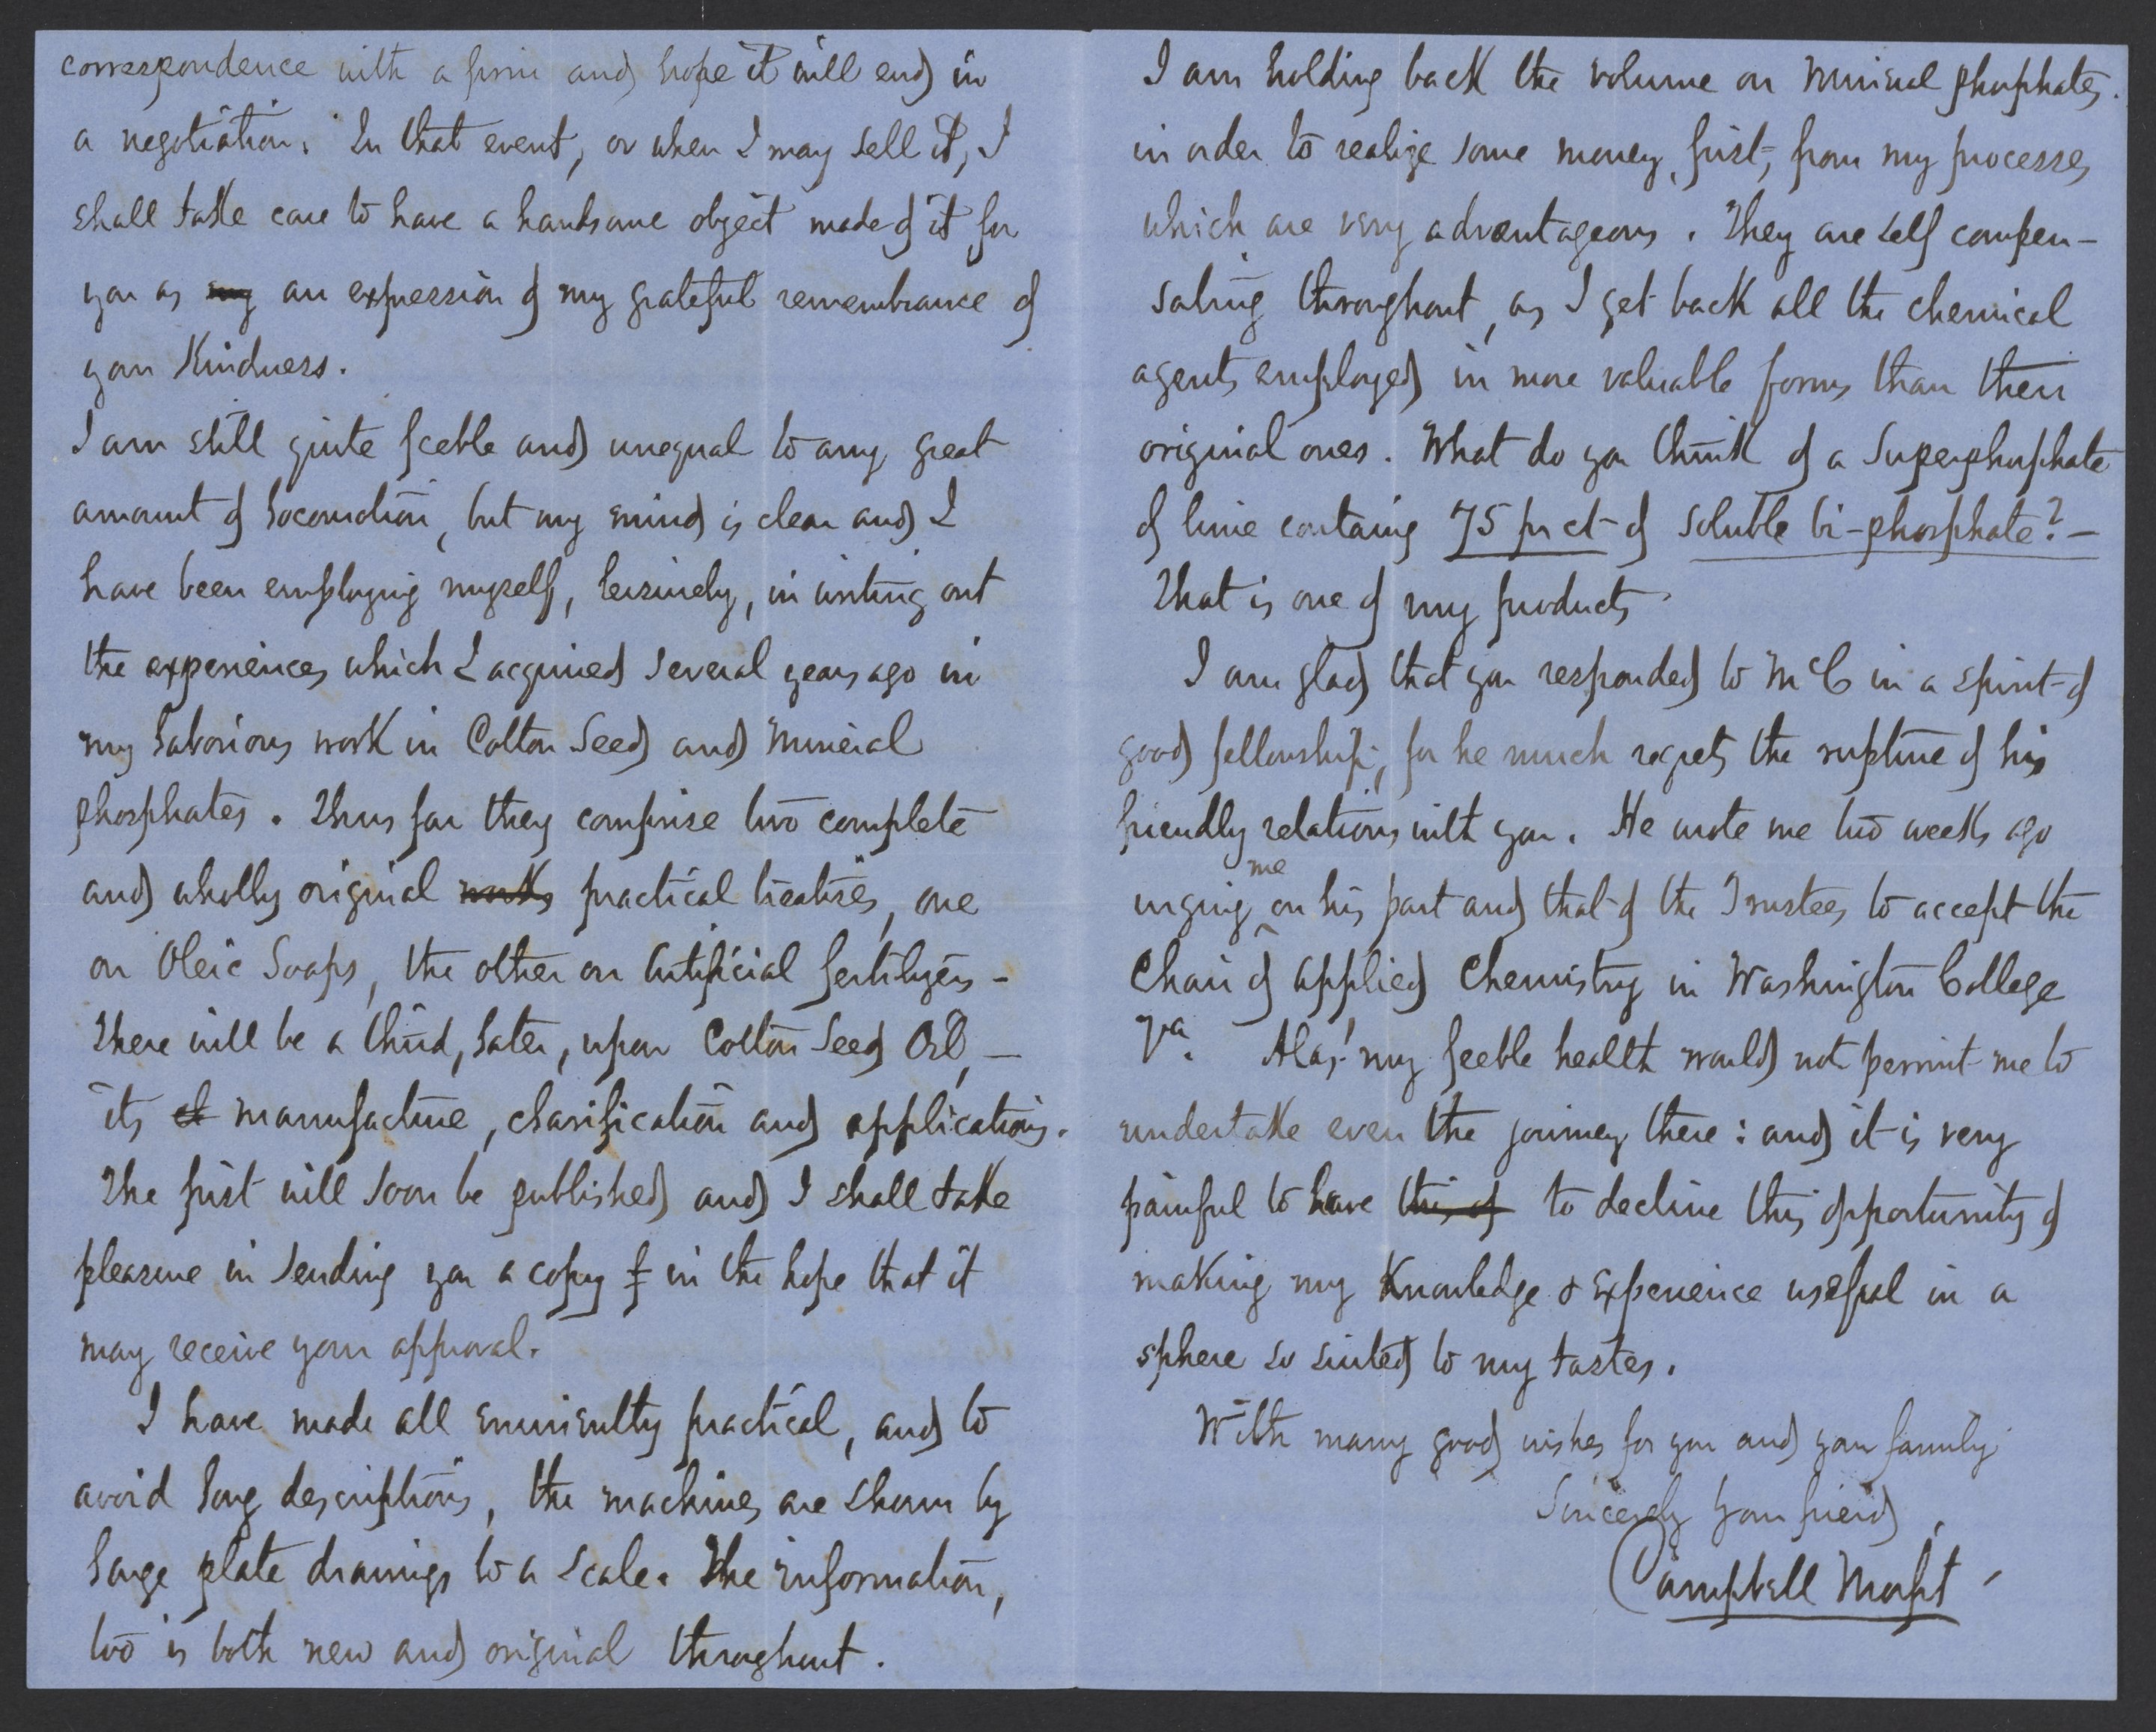 correspondence with a firm and hope it will end in
a negotiation. In that event, or when I may sell it, I
shall take care to have a handsome object made of it for
you as my an expression of my grateful remembrance of
your kindness.
I am still quite feeble and unequal to any great
amount of locomotion, but my mind is clear and I
have been employing myself, leisurely, in writing out
the experiences which I acquired several years ago in
my laborious work in Cotton Seed and Mineral
phosphates. Thus far they comprise two complete
and wholly original works practical treatises, one
on Oleic Soaps, the other on Artificial fertilizers -
There will be a third, later, upon Cotton Seed Oil, —
its of manufacture, clarification and applications.
The first will soon be published and I shall take
pleasure in sending you a copy in the hope that it
may receive your approval.
I have made all eminently practical, and to
avoid long descriptions, the machines are shown by
large plate drawings to a scale. The information,
too is both new and original throughout.
I am holding back the volume on Mineral phosphates.
in order to realize some money, first, from my processes
which are very advantageous. They are self compen-
sating throughout, as I get back all the chemical
agents employed in more valuable forms than their
original ones. What do you think of a Superphosphate
of lime containg 75 pr ct of soluble bi-phosphate? —
That is one of my products.
I am glad that you responded to McC in a spirit of
good fellowship; for he much regrets the rupture of his
friendly relations with you. He wrote me two weeks ago
urging me on his part and that of the Trustees to accept the
Chair of applied Chemistry in Washington College
Va. Alas! my feeble health would not permit me to
undertake even the journey there: and it is very
painful to have this of to decline this opportunity of
making my Knowledge & experience useful in a
sphere so suited to my tastes.
With many good wishes for you and your family
Sincerely your friend,
Campbell Morfit